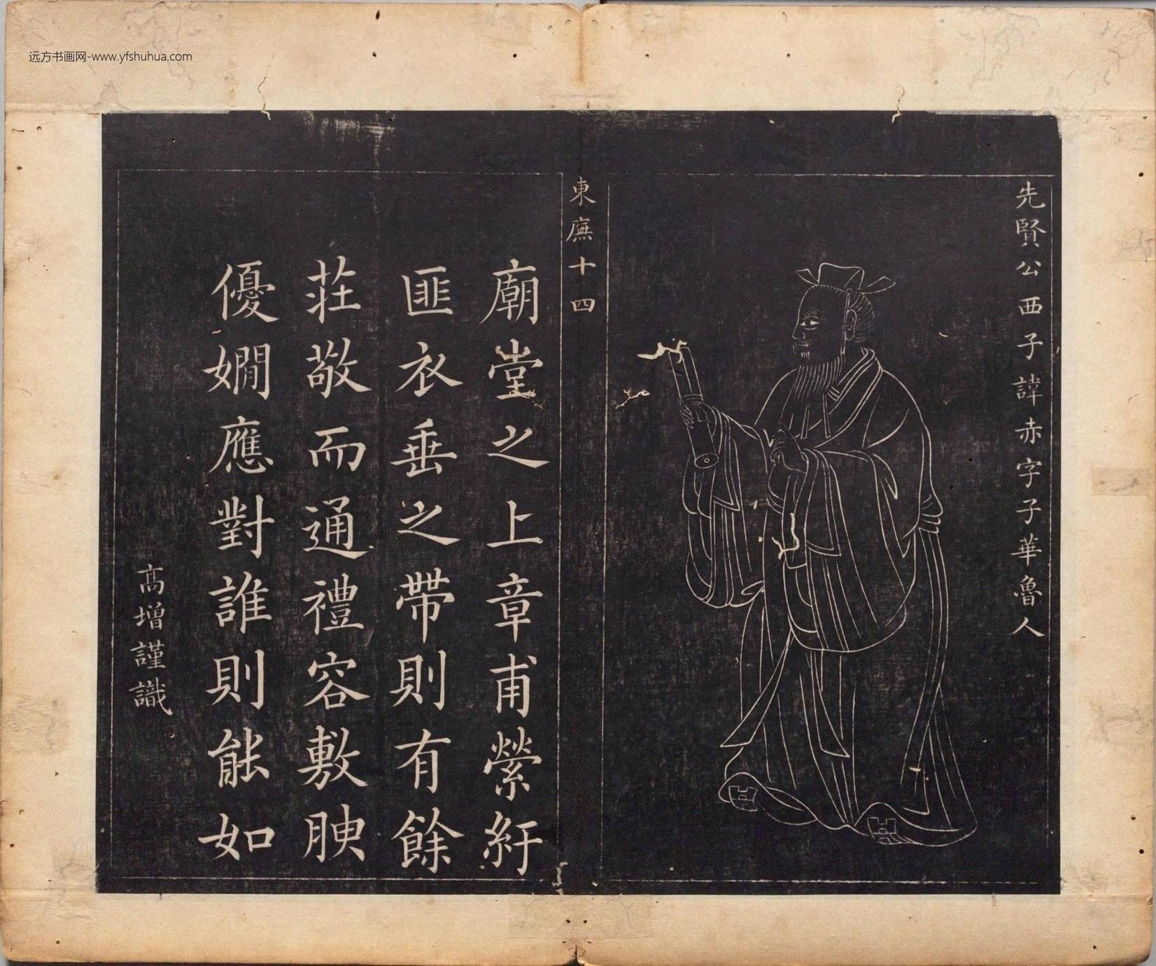 远方书画网-www.yfshuhua.com
先賢公西子諱赤字子華魯人
東廡十四
廟堂之上章甫縈紆
匪衣垂之帶則有餘
莊敬而通禮容敷腴
優嫺應對誰則能如
高增謹識